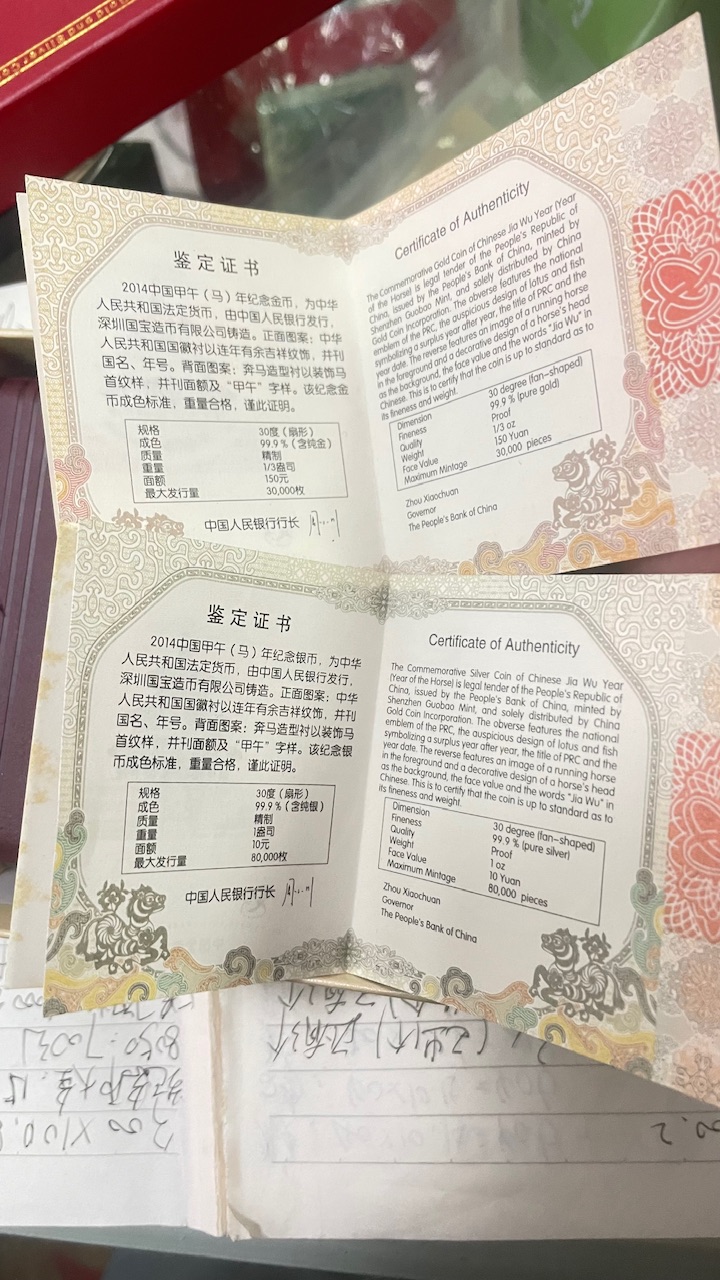 鉴定证书
2014中国甲午（马）年纪念金币，为中华
人民共和国法定货币，由中国人民银行发行，
深圳国宝造币有限公司铸造。正面图案：中华
人民共和国国徽衬以连年有余吉祥纹饰，并刊
国名、年号。背面图案：奔马造型衬以装饰马
首纹样，并刊面额及“甲午”字样。该纪念金
币成色标准，重量合格，谨此证明。
规格 30度（扇形）
成色 99.9％（含纯金）
质量 精制
重量 1/3盎司
面额 150元
最大发行量 30,000枚
中国人民银行行长
Certificate of Authenticity
The Commemorative Gold Coin of Chinese Jia Wu Year (Year
of the Horse) is legal tender of the People's Republic of
China, issued by the People's Bank of China, minted by
Shenzhen Guobao Mint, and solely distributed by China
Gold Coin Incorporation. The obverse features the national
emblem of the PRC, the auspicious design of lotus and fish
symbolizing a surplus year after year, the title of PRC and the
year date. The reverse features an image of a running horse
in the foreground and a decorative design of a horse's head
as the background, the face value and the words "Jia Wu" in
Chinese. This is to certify that the coin is up to standard as to
its fineness and weight.
Dimension 30 degree (fan-shaped)
Fineness 99.9 % (pure gold)
Quality Proof
Weight 1/3 oz
Face Value 150 Yuan
Maximum Mintage 30,000 pieces
Zhou Xiaochuan
Governor
The People's Bank of China
鉴定证书
2014中国甲午（马）年纪念银币，为中华
人民共和国法定货币，由中国人民银行发行，
深圳国宝造币有限公司铸造。正面图案：中华
人民共和国国徽衬以连年有余吉祥纹饰，并刊
国名、年号。背面图案：奔马造型衬以装饰马
首纹样，并刊面额及“甲午”字样。该纪念银
币成色标准，重量合格，谨此证明。
规格 30度（扇形）
成色 99.9％（含纯银）
质量 精制
重量 1盎司
面额 10元
最大发行量 80,000枚
中国人民银行行长
Certificate of Authenticity
The Commemorative Silver Coin of Chinese Jia Wu Year
(Year of the Horse) is legal tender of the People's Republic of
China, issued by the People's Bank of China, minted by
Shenzhen Guobao Mint, and solely distributed by China
Gold Coin Incorporation. The obverse features the national
emblem of the PRC, the auspicious design of lotus and fish
symbolizing a surplus year after year, the title of PRC and the
year date. The reverse features an image of a running horse
in the foreground and a decorative design of a horse's head
as the background, the face value and the words "Jia Wu" in
Chinese. This is to certify that the coin is up to standard as to
its fineness and weight.
Dimension 30 degree (fan-shaped)
Fineness 99.9 % (pure silver)
Quality Proof
Weight 1 oz
Face Value 10 Yuan
Maximum Mintage 80,000 pieces
Zhou Xiaochuan
Governor
The People's Bank of China